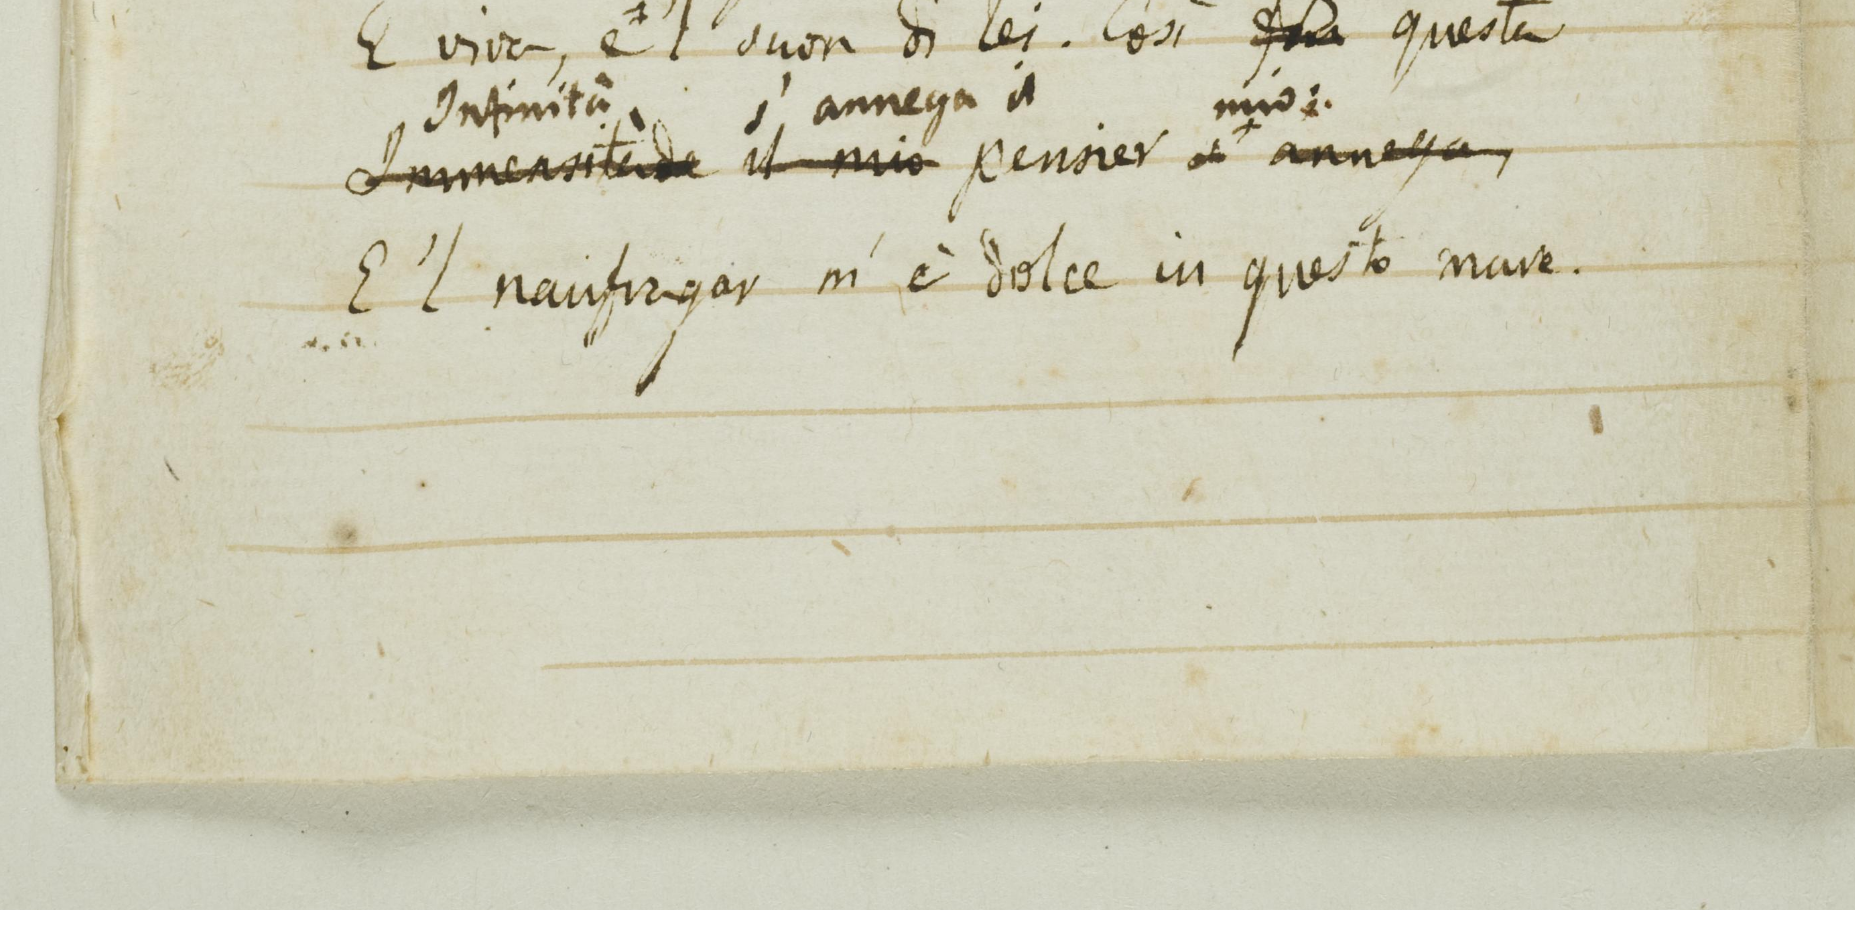 E viva, e 'l suon di lei. Così questa
Infinità s' annega il mio:
Immensitade il mio pensier s' annega,
E 'l naufragar m' è dolce in questo mare.